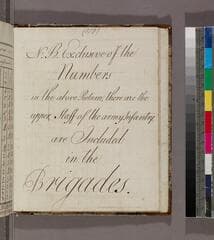 N.B. Exclusive of the
Numbers
in the above there are the
upper Staff of the army Infantry
are Included
in the
Brigades.